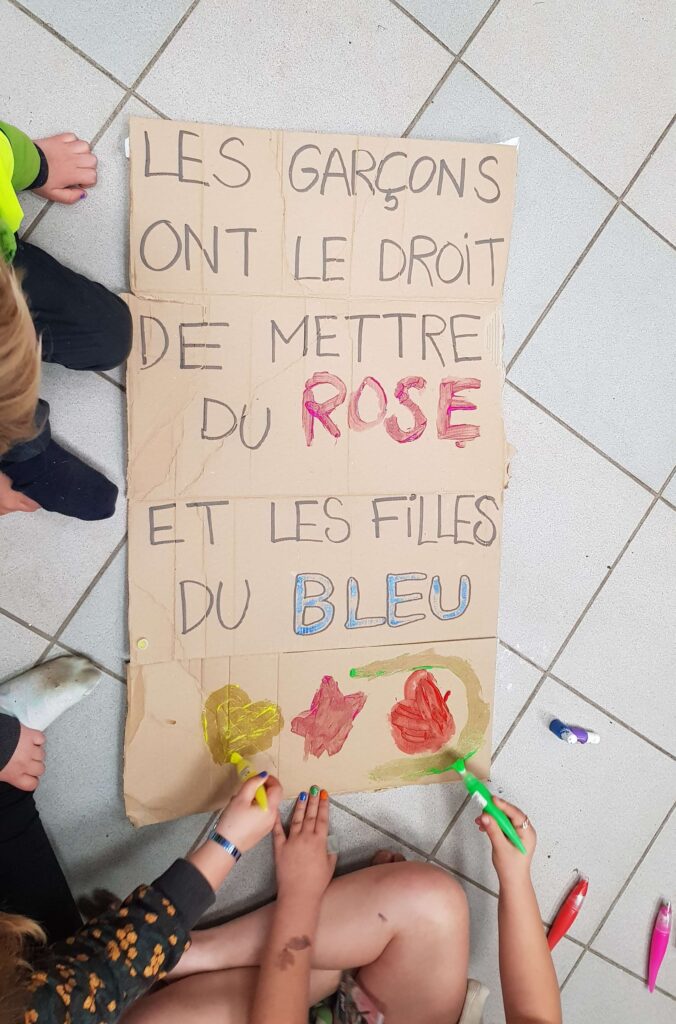 LES GARÇONS
ONT LE DROIT
DE METTRE
DU ROSE
ET LES FILLES
DU BLEU